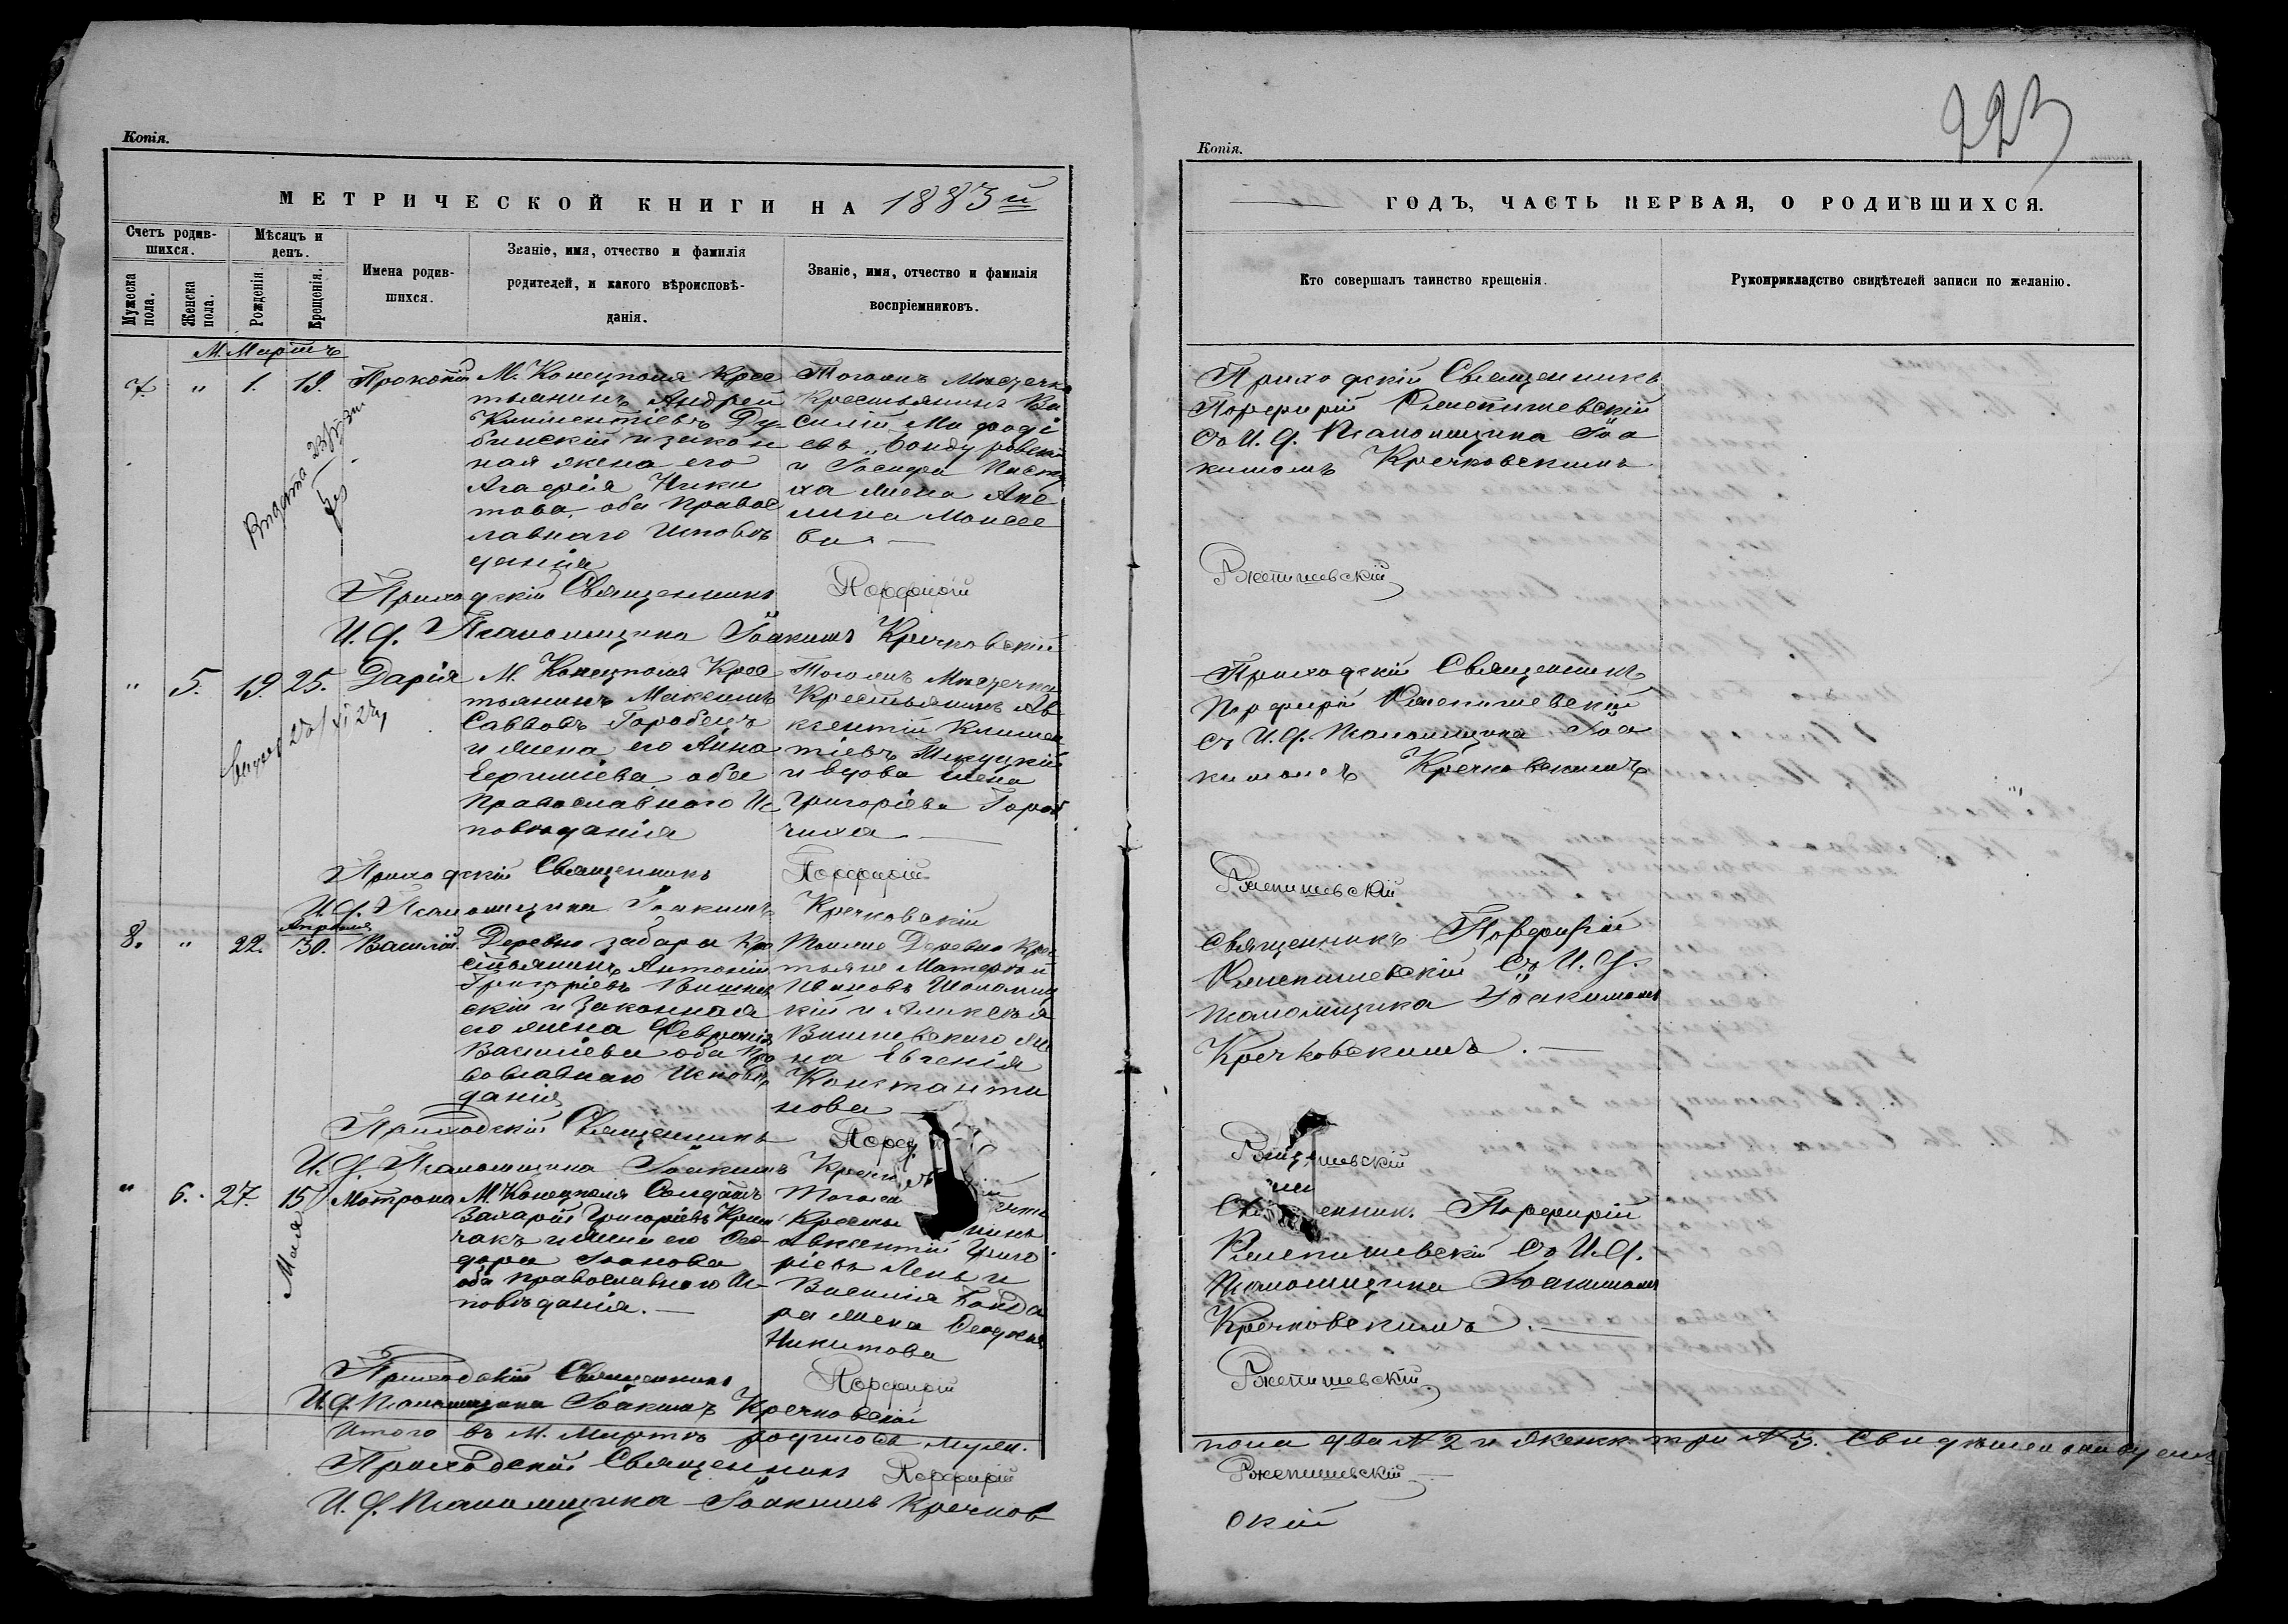 223
Копія.
МЕТРИЧЕСКОЙ КНИГИ НА 1883й
Счетъ родив-
шихся.
Мѣсяцъ и
день.
Мужеска
пола.
Женска
пола.
Рожденія.
Крещенія.
Имена родив-
шихся.
Званіе, имя, отчество и фамилія
родителей, и какого вѣроисповѣ-
данія.
Званіе, имя, отчество и фамилія
воспріемниковъ.
М. Мартъ
7. " 1. 19. Прокопій
М. Конецполя Крес
тьянинъ Андрей
Климентіевъ Ду
бинскій и закон
ная жена его
Агафія Ники
това, оба Правос
лавнаго Исповѣ
данія
Тогожъ Мѣстечка
Крестьянинъ Ва
силій
и
ха жена Аке
лина Моисее
ва
Приходскій Священникъ Порфирій
И. д. Псаломщика Іоакимъ Кречковскій
" 5. 19. 25. Дарія
М. Конецполя Крес
тьянинъ Максимъ
Саввовъ Горобецъ
и жена его Анна
Ефимiева оба
Православнаго Ис
повѣданія
Тогожъ Мѣстечка
Крестьянинъ Ав
ксентій Климен
тіевъ
и вдова Елена
Григоріева Гороб
чиха
Приходскій Священникъ Порфирій
И. д. Псаломщика Іоакимъ Кречковскій
8. " 22. Апрѣля 30. Василій
Деревни Забары Кре
стьянинъ Антоній
Григоріевъ Вишнев
скій и Законная
его жена Февронія
Василіева оба Пра
вославнаго Исповѣ
данія
Тоиже Деревни Крес
тьяне Матфей
Ивановъ
кій и Алексѣя
Вишневскаго же
на Евгенія
Константи
нова
Приходскій Священникъ Порф
И. д. Псаломщика Іоакимъ
" 6. 27. 15 Мая Мотрона
М. Конецполя Солдатъ
Захарій Григоріевъ
и жена его Ѳео
дора Іоанова
оба православнаго Ис
повѣданія.
Тогожъ
Кресть
Авксентій Григо
ріевъ Лень и
Василія Бонда
ра жена Ѳеодосія
Никитова
Приходскій Священникъ Порфирій
И. д. Псаломщика Іоакимъ Кречковскій
Итого въ М. Мартѣ родилось мужи.
Приходскій Священникъ Порфирій
И. д. Псаломщика Іоакимъ Кречков
Копія.
ГОДЪ, ЧАСТЬ ПЕРВАЯ, О РОДИВШИХСЯ.
Кто совершалъ таинство крещенія.
Рукоприкладство свидѣтелей записи по желанію.
Приходскій Священникъ
Порфирій Ржепишевскій
съ И. д. Псаломщика Іоа
кимомъ Кречковскимъ
Ржепишевскій
Приходскій Священникъ
Порфирій Ржепишевскій
съ И. д. Псаломщика Іоа
кимомъ Кречковскимъ
Ржепишевскій
Священникъ Порфирій
Ржепишевскій съ И. д.
Псаломщика Іоакимомъ
Кречковскимъ.
Ржепишевскій
Священник. Порфирій
Ржепишевскій съ И. д.
Псаломщика Іоакимомъ
Кречковскимъ.
Ржепишевскій
пола два № 2 и женск. три № 3.
Ржепишевскій
скій